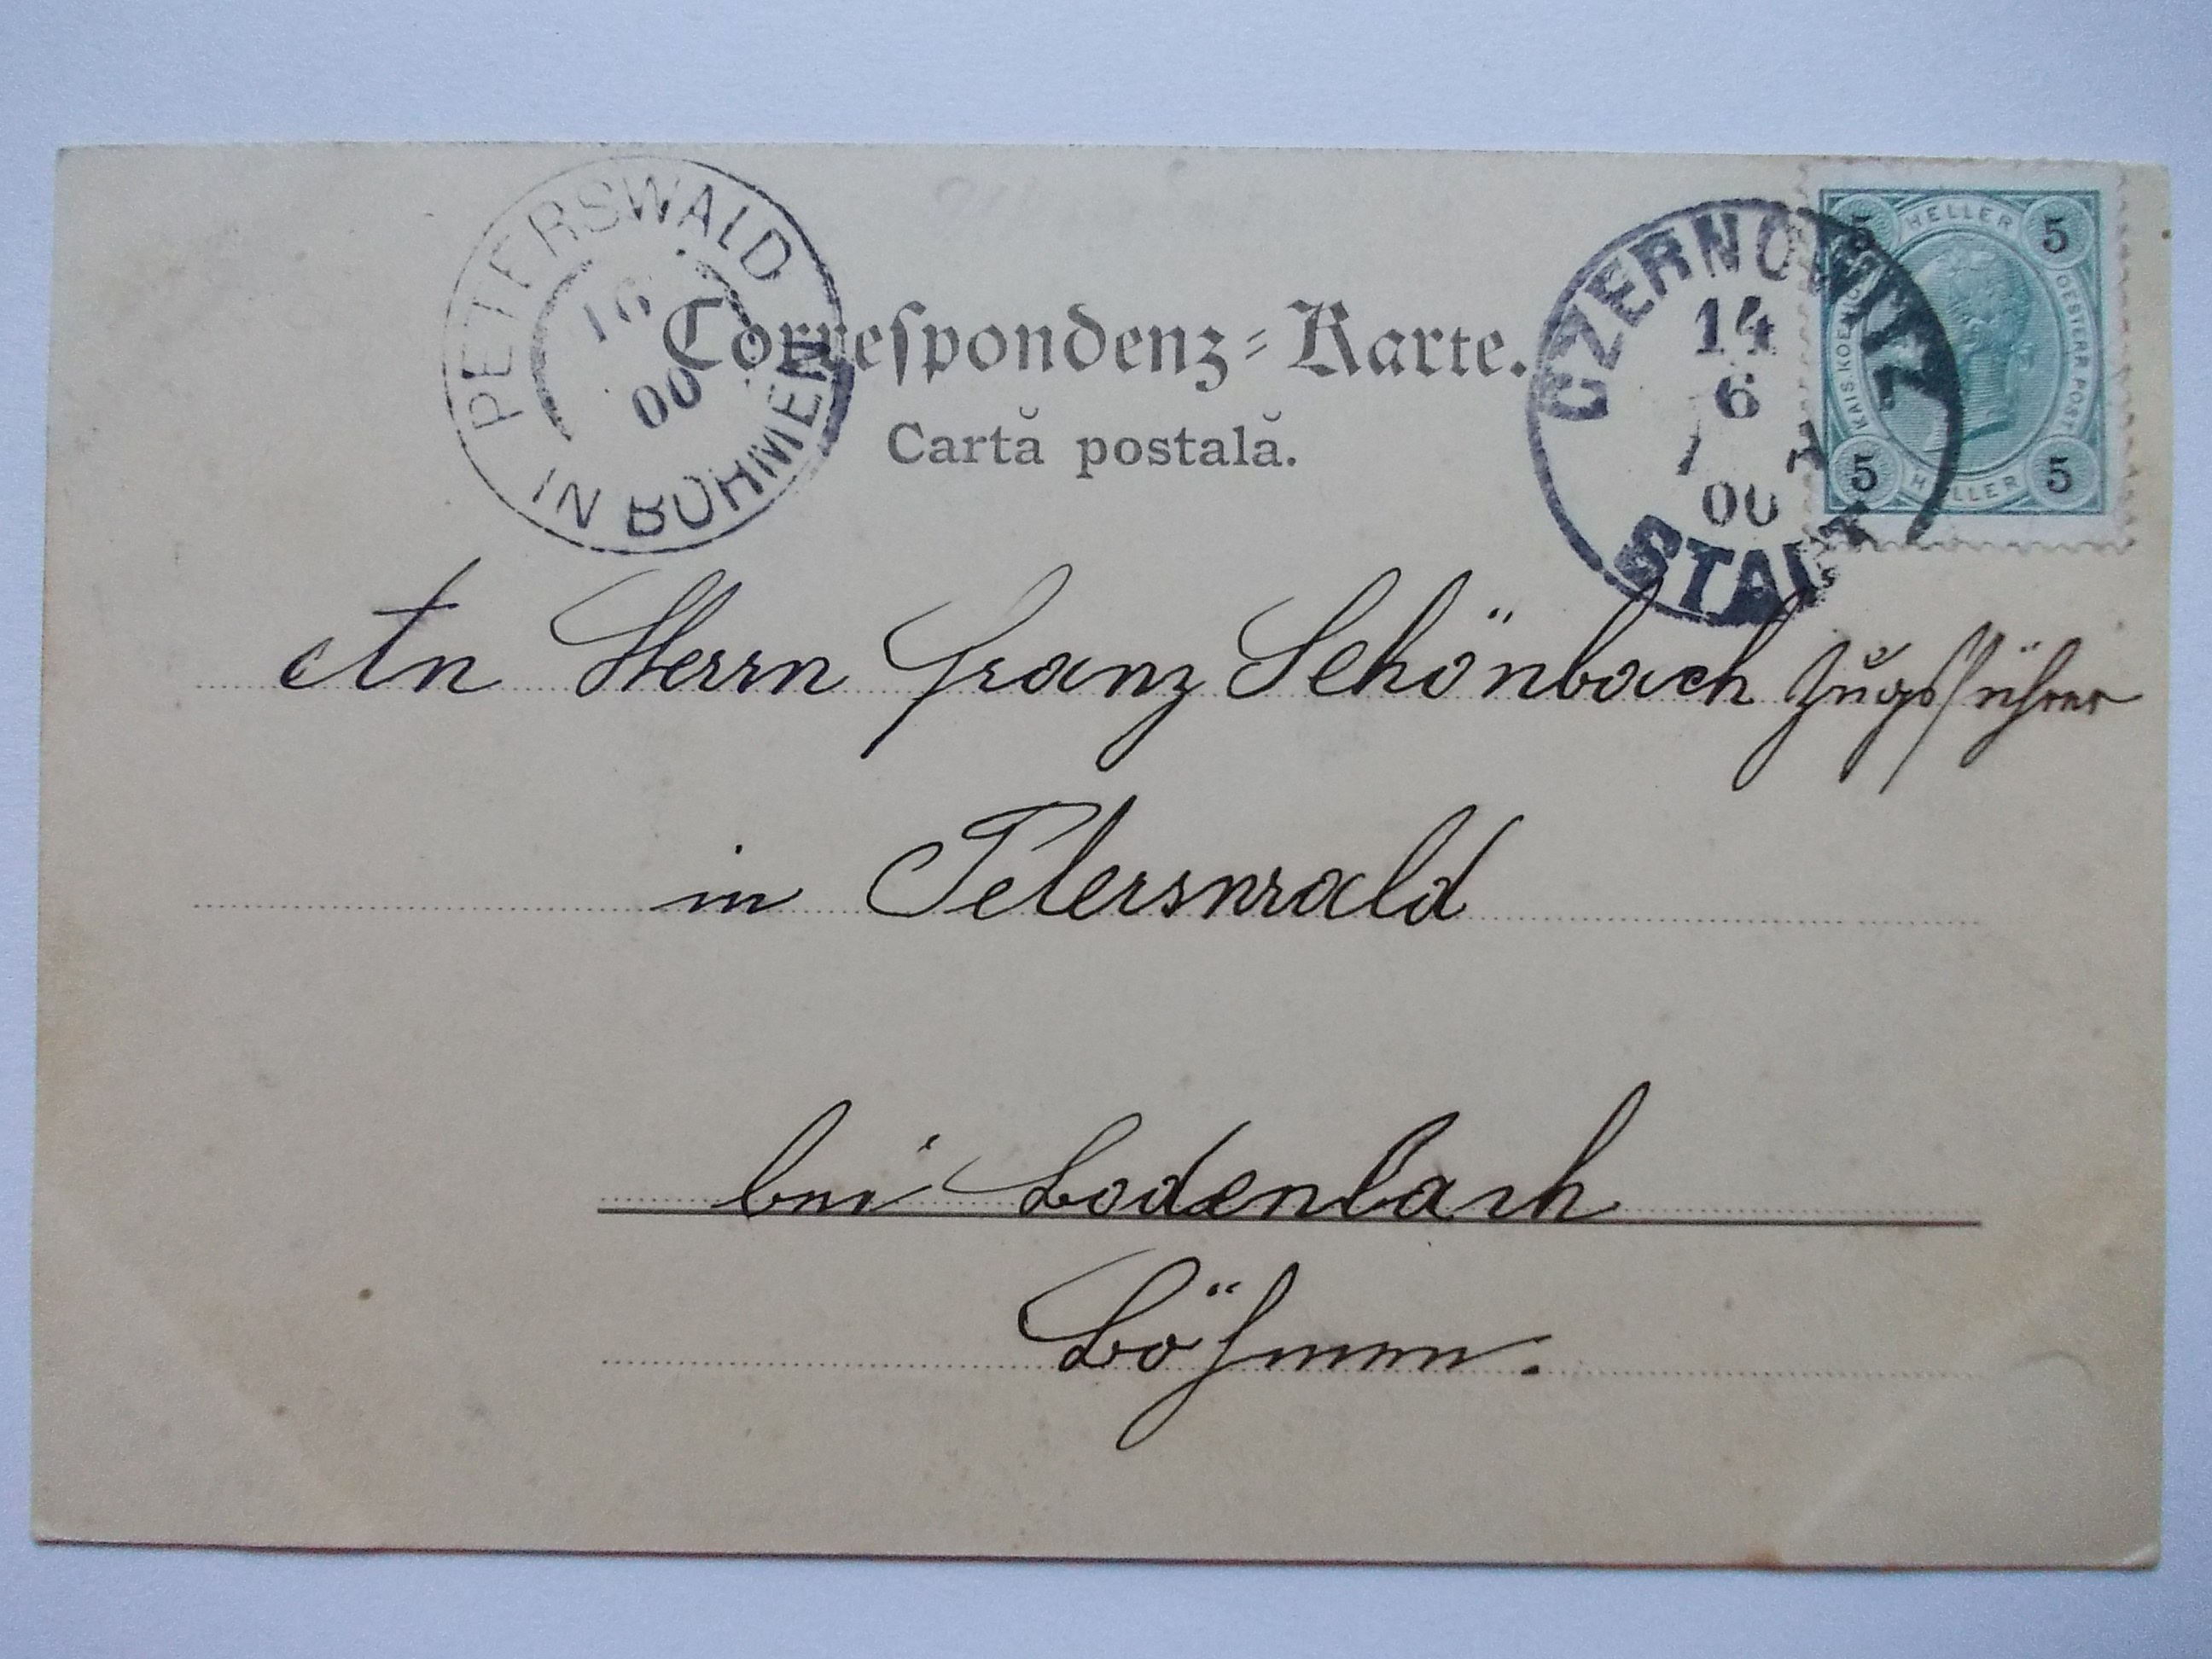 PETERSWALD
IN BÖHMEN
16
00
Correſpondenz-Karte.
Cartă postală.
CZERNOWITZ
14
6
00
STADT
5 HELLER 5
KAIS. KOENIGL.
OESTERR. POST
5 HELLER 5
An Herrn Franz Schönbach Zugsführer
in Peterswald
bei Bodenbach
Böhmen.